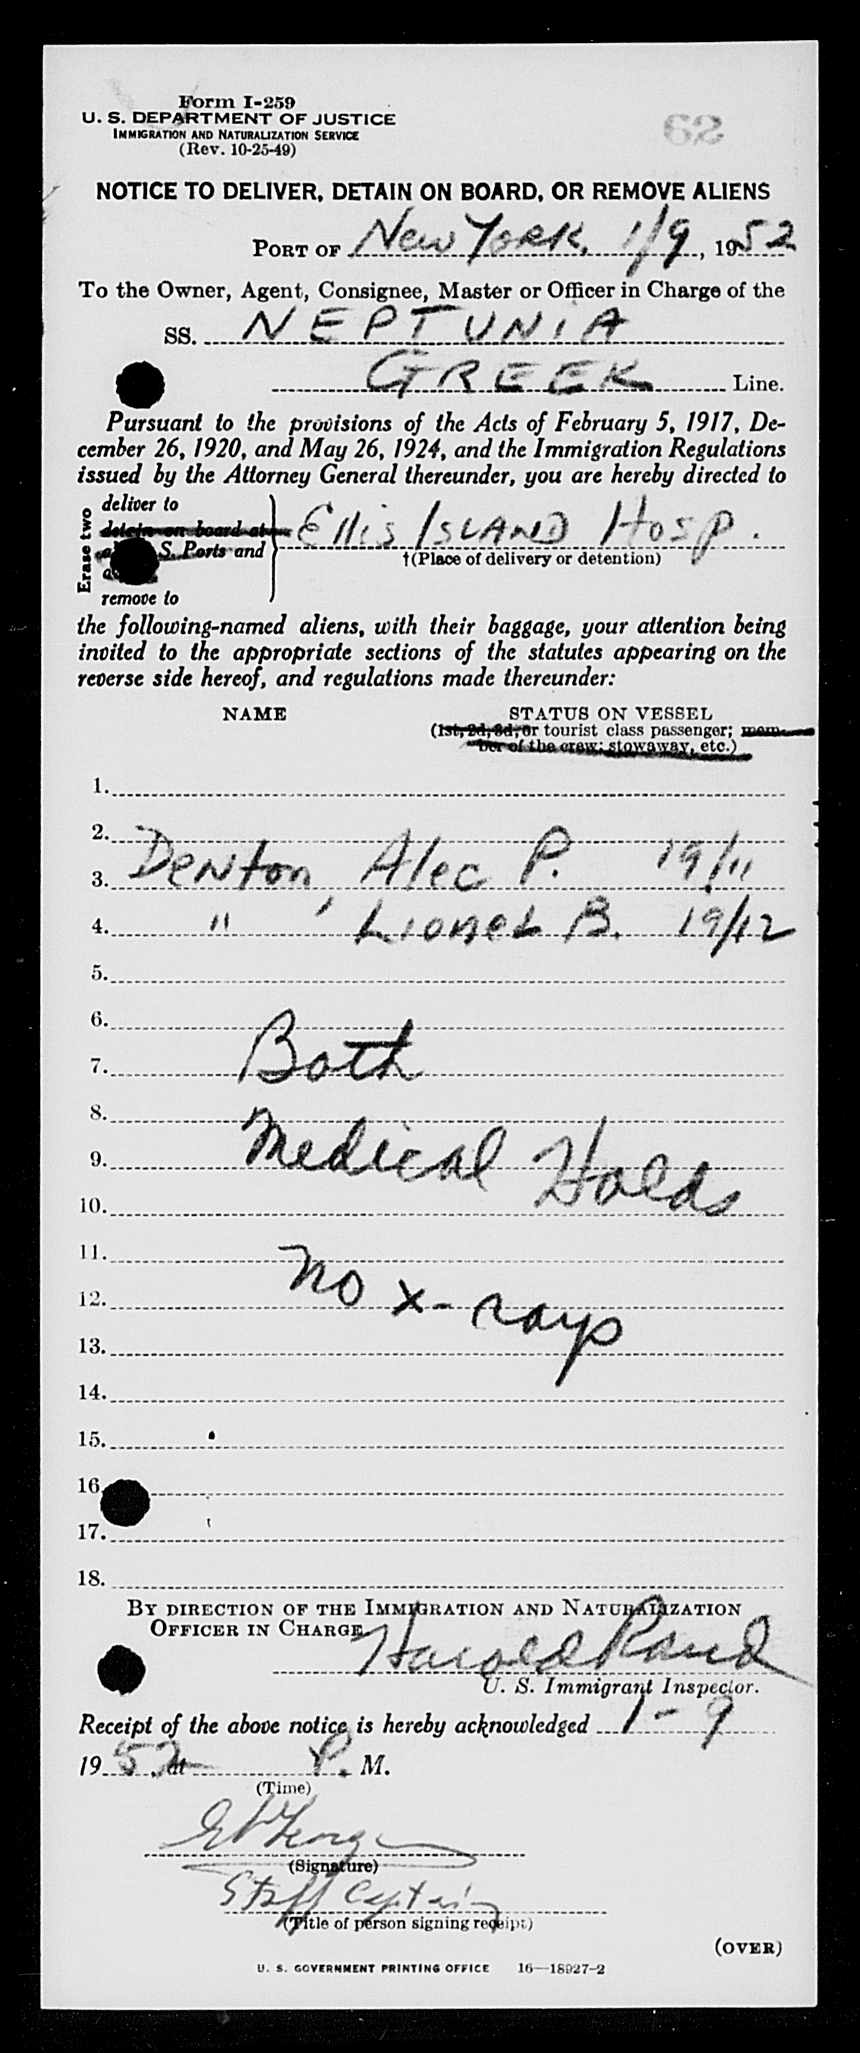 Form I-259
U. S. DEPARTMENT OF JUSTICE
IMMIGRATION AND NATURALIZATION SERVICE
(Rev. 10-25-49)
62
NOTICE TO DELIVER, DETAIN ON BOARD, OR REMOVE ALIENS
PORT OF New York, 1/9, 1952
To the Owner, Agent, Consignee, Master or Officer in Charge of the
SS. NEPTUNIA
GREEK Line.
Pursuant to the provisions of the Acts of February 5, 1917, De-
cember 26, 1920, and May 26, 1924, and the Immigration Regulations
issued by the Attorney General thereunder, you are hereby directed to
Erase two
deliver to
detain on board at
S. Ports and
Ellis ISLAND Hosp.
†(Place of delivery or detention)
remove to
the following-named aliens, with their baggage, your attention being
invited to the appropriate sections of the statutes appearing on the
reverse side hereof, and regulations made thereunder:
NAME STATUS ON VESSEL
(1st, 2d, 3d, or tourist class passenger; mem-
ber of the crew; stowaway, etc.)
1.
2.
3. Denton, Alec P. 19/11
4. " Lionel B. 19/12
5.
6.
7. Both
8.
9. Medical Holds
10.
11.
12. no x-rays
13.
14.
15.
16.
17.
18.
BY DIRECTION OF THE IMMIGRATION AND NATURALIZATION
OFFICER IN CHARGE
Harold Rand
U. S. Immigrant Inspector.
Receipt of the above notice is hereby acknowledged 1-9
1952, at P. M.
(Time)
(Signature)
Staff Captain
(Title of person signing receipt)
(OVER)
U. S. GOVERNMENT PRINTING OFFICE 16—18927-2